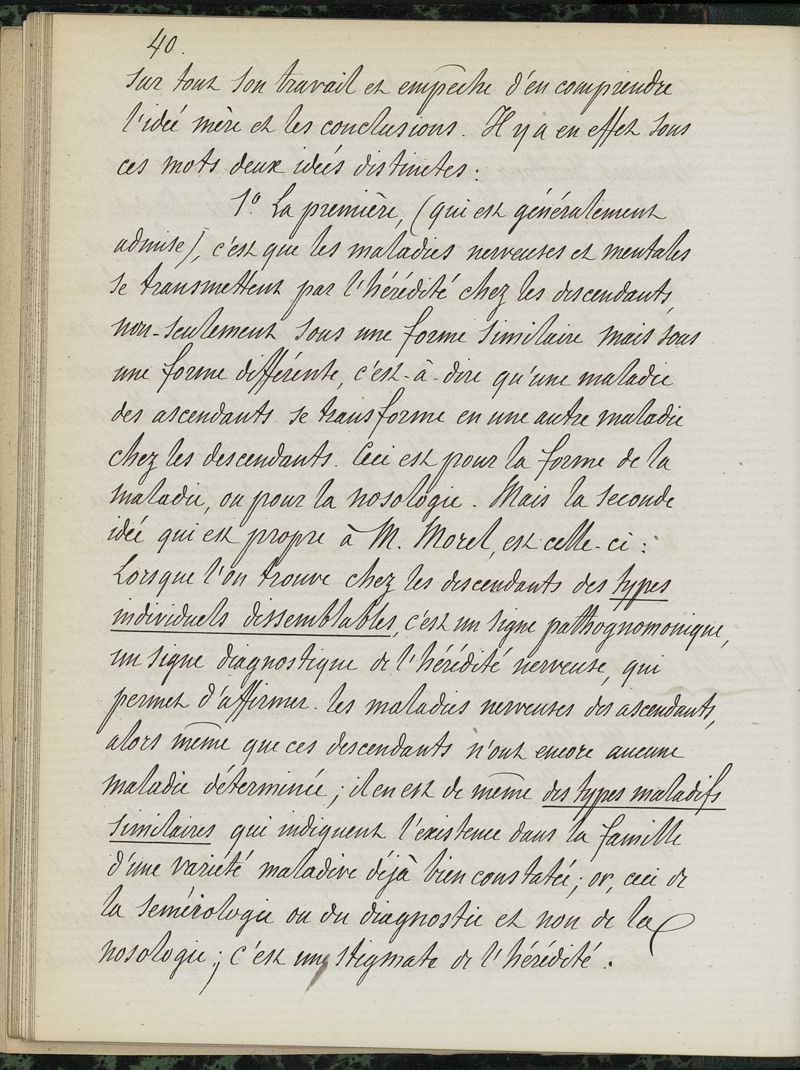 40.
sur tout son travail et empêche d'en comprendre
l'idée mère et les conclusions. Il y a en effet sous
ces mots deux idées distinctes :
1º La première, (qui est généralement
admise), c'est que les maladies nerveuses et mentales
se transmettent par l'hérédité chez les descendants,
non-seulement sous une forme similaire mais sous
une forme différente, c'est-à-dire qu'une maladie
des ascendants se transforme en une autre maladie
chez les descendants. Ceci est pour la forme de la
maladie, ou pour la nosologie. Mais la seconde
idée qui est propre à M. Morel, est celle-ci :
Lorsque l'on trouve chez les descendants des types
individuels dissemblables, c'est un signe pathognomonique,
un signe diagnostique de l'hérédité nerveuse, qui
permet d'affirmer les maladies nerveuses des ascendants,
alors même que ces descendants n'ont encore aucune
maladie déterminée ; il en est de même des types maladifs
similaires qui indiquent l'existence dans la famille
d'une variété maladive déjà bien constatée ; or, ceci de
la seméiologie ou du diagnostic et non de la
nosologie ; c'est un stigmate de l'hérédité.